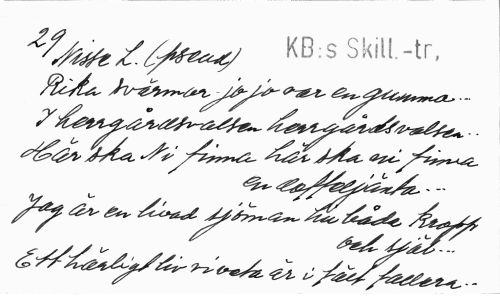 29 Nisse L. (pseud) KB:s Skill.-tr,
Rika svärmor jo jo var en gumma...
I herrgårdsvalsen herrgårdsvalsen..
Här ska Ni finna här ska ni finna
en doffeljänta...
Jag är en livad sjöman hu både kropp
och själ...
Ett härligt liv vi veta är i fält fallera...